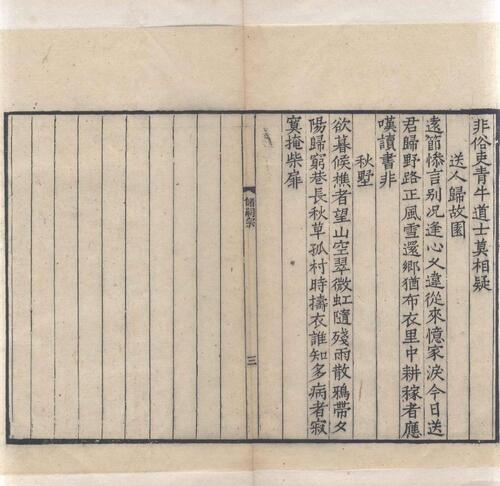 非俗吏青牛道士莫相疑
送人歸故園
遠節慘言别况逢心久違從來憶家淚今日送
君歸野路正風雪還鄉猶布衣里中耕稼者應
嘆讀書非
秋墅
欲暮候樵者望山空翠微虹隨殘雨散鴉帶夕
陽歸窮巷長秋草孤村時擣衣誰知多病者寂
寞掩柴扉
儲嗣宗
三